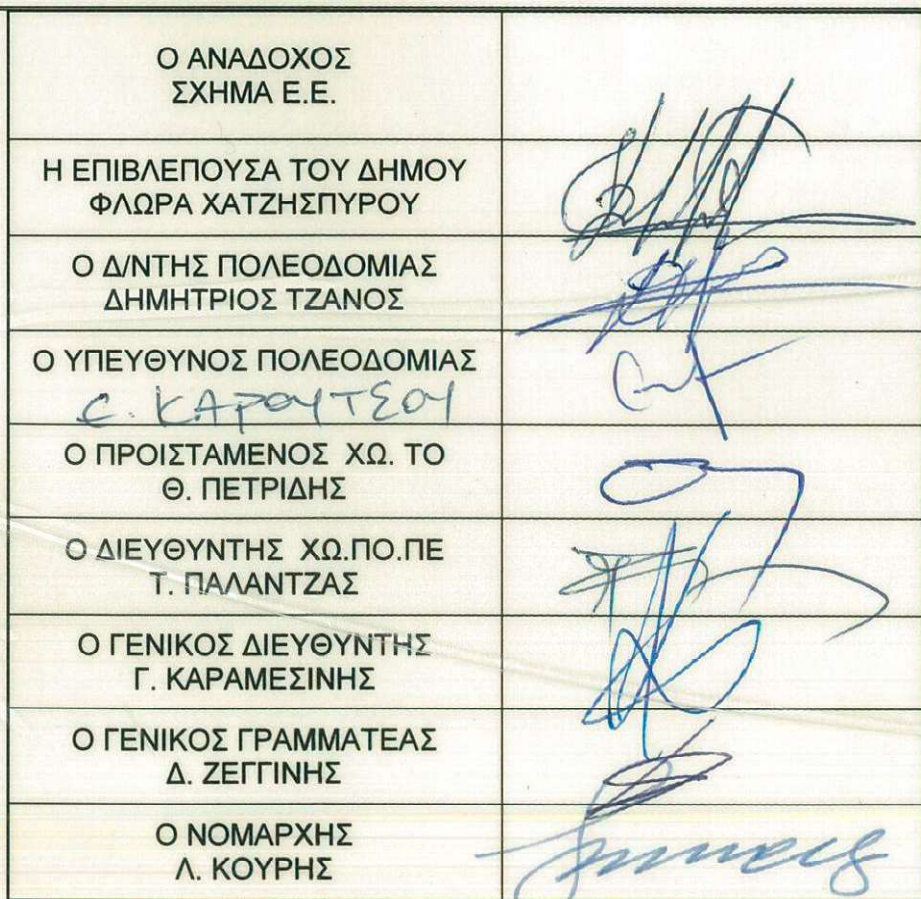 Ο ΑΝΑΔΟΧΟΣ
ΣΧΗΜΑ Ε.Ε.
Η ΕΠΙΒΛΕΠΟΥΣΑ ΤΟΥ ΔΗΜΟΥ
ΦΛΩΡΑ ΧΑΤΖΗΣΠΥΡΟΥ
Ο Δ/ΝΤΗΣ ΠΟΛΕΟΔΟΜΙΑΣ
ΔΗΜΗΤΡΙΟΣ ΤΖΑΝΟΣ
Ο ΥΠΕΥΘΥΝΟΣ ΠΟΛΕΟΔΟΜΙΑΣ
ΚΑΡΟΥΤΣΟΥ
Ο ΠΡΟΙΣΤΑΜΕΝΟΣ ΧΩ. ΤΟ
Θ. ΠΕΤΡΙΔΗΣ
Ο ΔΙΕΥΘΥΝΤΗΣ ΧΩ.ΠΟ.ΠΕ
Τ. ΠΑΛΑΝΤΖΑΣ
Ο ΓΕΝΙΚΟΣ ΔΙΕΥΘΥΝΤΗΣ
Γ. ΚΑΡΑΜΕΣΙΝΗΣ
Ο ΓΕΝΙΚΟΣ ΓΡΑΜΜΑΤΕΑΣ
Δ. ΖΕΓΓΙΝΗΣ
Ο ΝΟΜΑΡΧΗΣ
Λ. ΚΟΥΡΗΣ